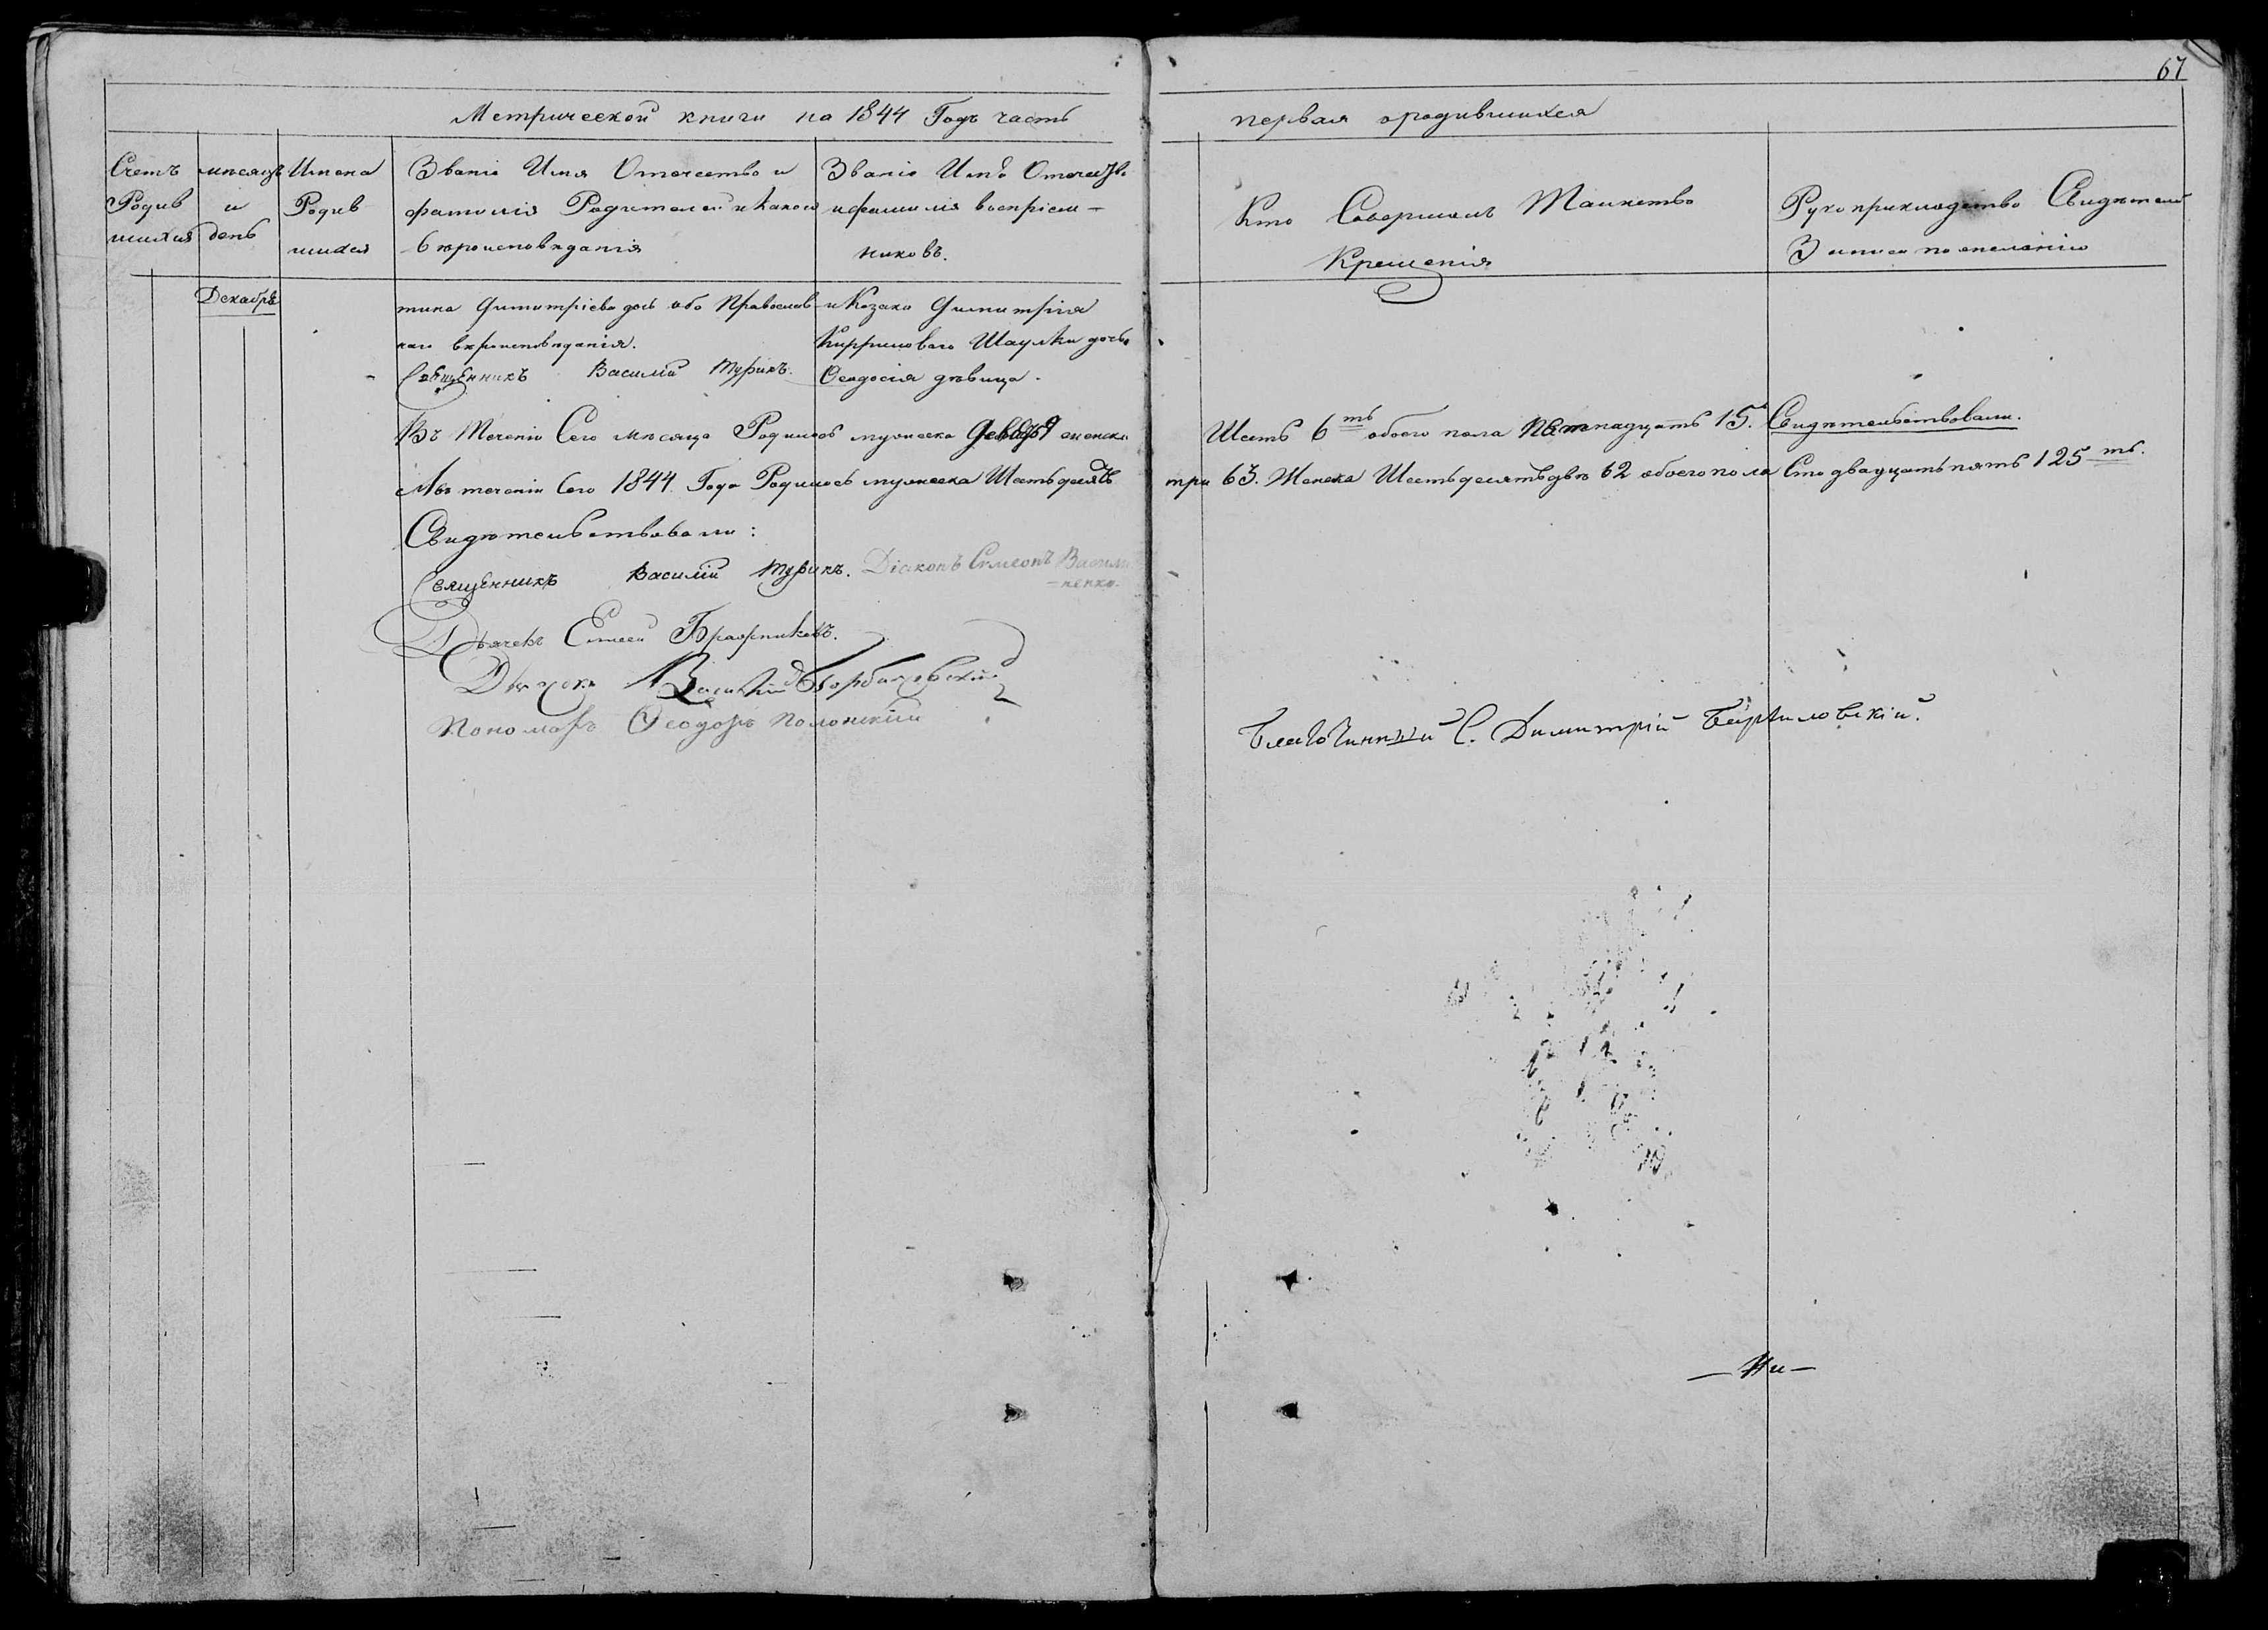 67
Метрической книги на 1844 Годъ часть первая ородившихся
Счетъ Родив шихся
мѣсяцъ и день
Имена Родив шихся
Званіе Имя Отечество и
фамилія Родителей и какого
вѣроисповѣданія
Званіе Имя Отечество
и фамилія воспріем-
никовъ.
Кто Совершалъ Таинство
Крещенія
Рукоприкладство Свидѣтелей
Записи по желанію
Декабрь
тина Димитріева дочь оба Православ
наго вѣроисповѣданія.
Священникъ Василій Турикъ.
и Козака Димитрія
Кириллового Шаулки дочь
Ѳеодосія дѣвица.
Въ Теченіи Сего мѣсяца Родилось мужеска девять 9 женска Шесть 6 ть обоего пола Пятнадцать 15. Свидѣтельствовали.
Авъ теченіи Сего 1844 Года Родилось мужеска Шестьдесятъ три 63. Женска Шестьдесятъ двѣ 62 обоего пола Сто двадцать пять 125 ть.
Свидѣтельствовали:
Священникъ Василій Турикъ. Діаконъ Симеонъ Василь
-ненко.
Дьячекъ Елисей
Дьячекъ Василій Горбачевскій
Пономарь Ѳеодоръ Полонскій
Благочинный С. Димитрій